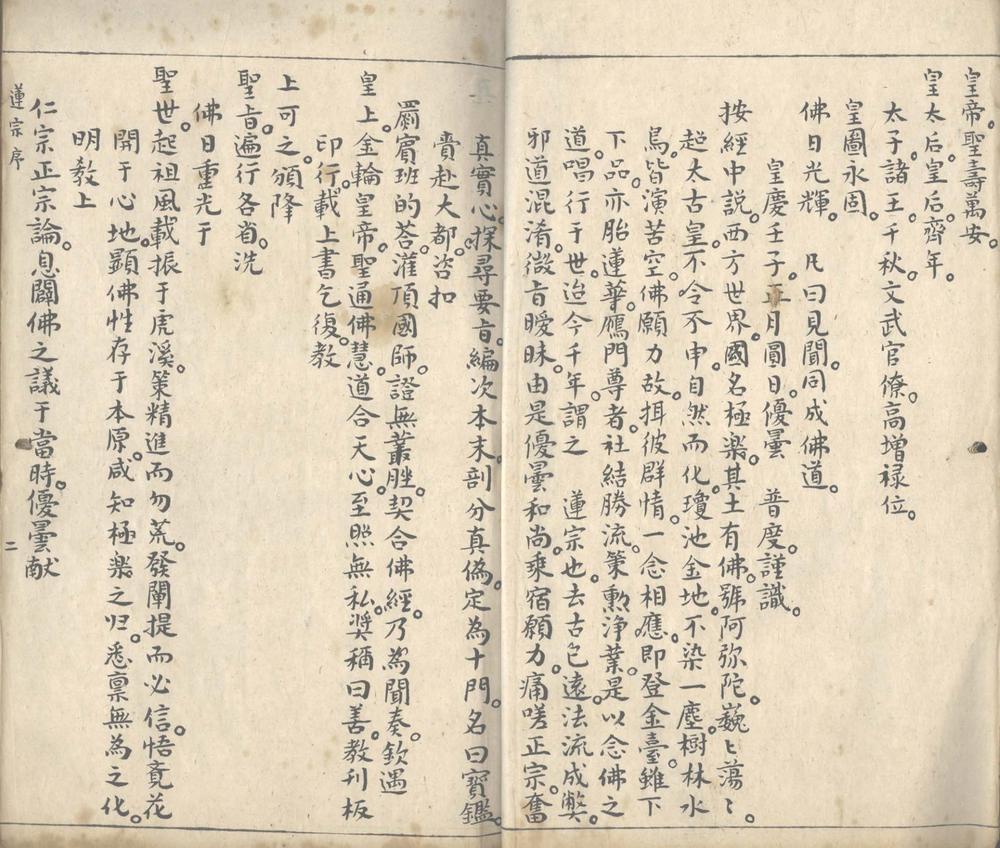 皇帝。聖壽萬安。
皇太后。皇后。齊年。
太子。諸王。千秋。文武官僚。高增禄位。
皇圖永固。
佛日光輝。凡曰見聞。同成佛道。
皇慶壬子。正月圓日。優曇 普度。謹識。
按經中説。西方世界。國名極樂。其土有佛。號阿弥陀。巍〻蕩〻。
超太古皇。不令不申。自然而化。瓊池金地。不染一塵。樹林水
鳥。皆演苦空。佛願力故。揖彼群情。一念相應。即登金臺。雖下
下品。亦胎蓮華。鴈門尊者。社結勝流。策勲浄業。是以念佛之
道。唱行于世。迨今千年。謂之 蓮宗也。去古已遠。法流成獘。
邪道混淆。微旨曖昧。由是優曇和尚。乘宿願力。痛嗟正宗。奮
真實心。探尋要旨。編次本末。剖分真偽。定為十門。名曰寳鑑。
賷赴大都。咨扣
罽賓班的荅。灌頂國師。證無叢脞。契合佛經。乃為聞奏。欽遇
皇上。金輪皇帝。聖通佛慧。道合天心。至照無私。奨稱曰善。教刊板
印行。載上書乞復。教
上可之。頒降
聖旨。遍行各省。洗
佛日重光于
聖世。起祖風載振于虎溪。策精進而勿荒。發闡提而必信。悟竟花
開于心地。顕佛性存于本原。咸知極樂之归。悉禀無為之化。
明教上
仁宗正宗論。息闢佛之議于當時。優曇献
蓮宗序
二